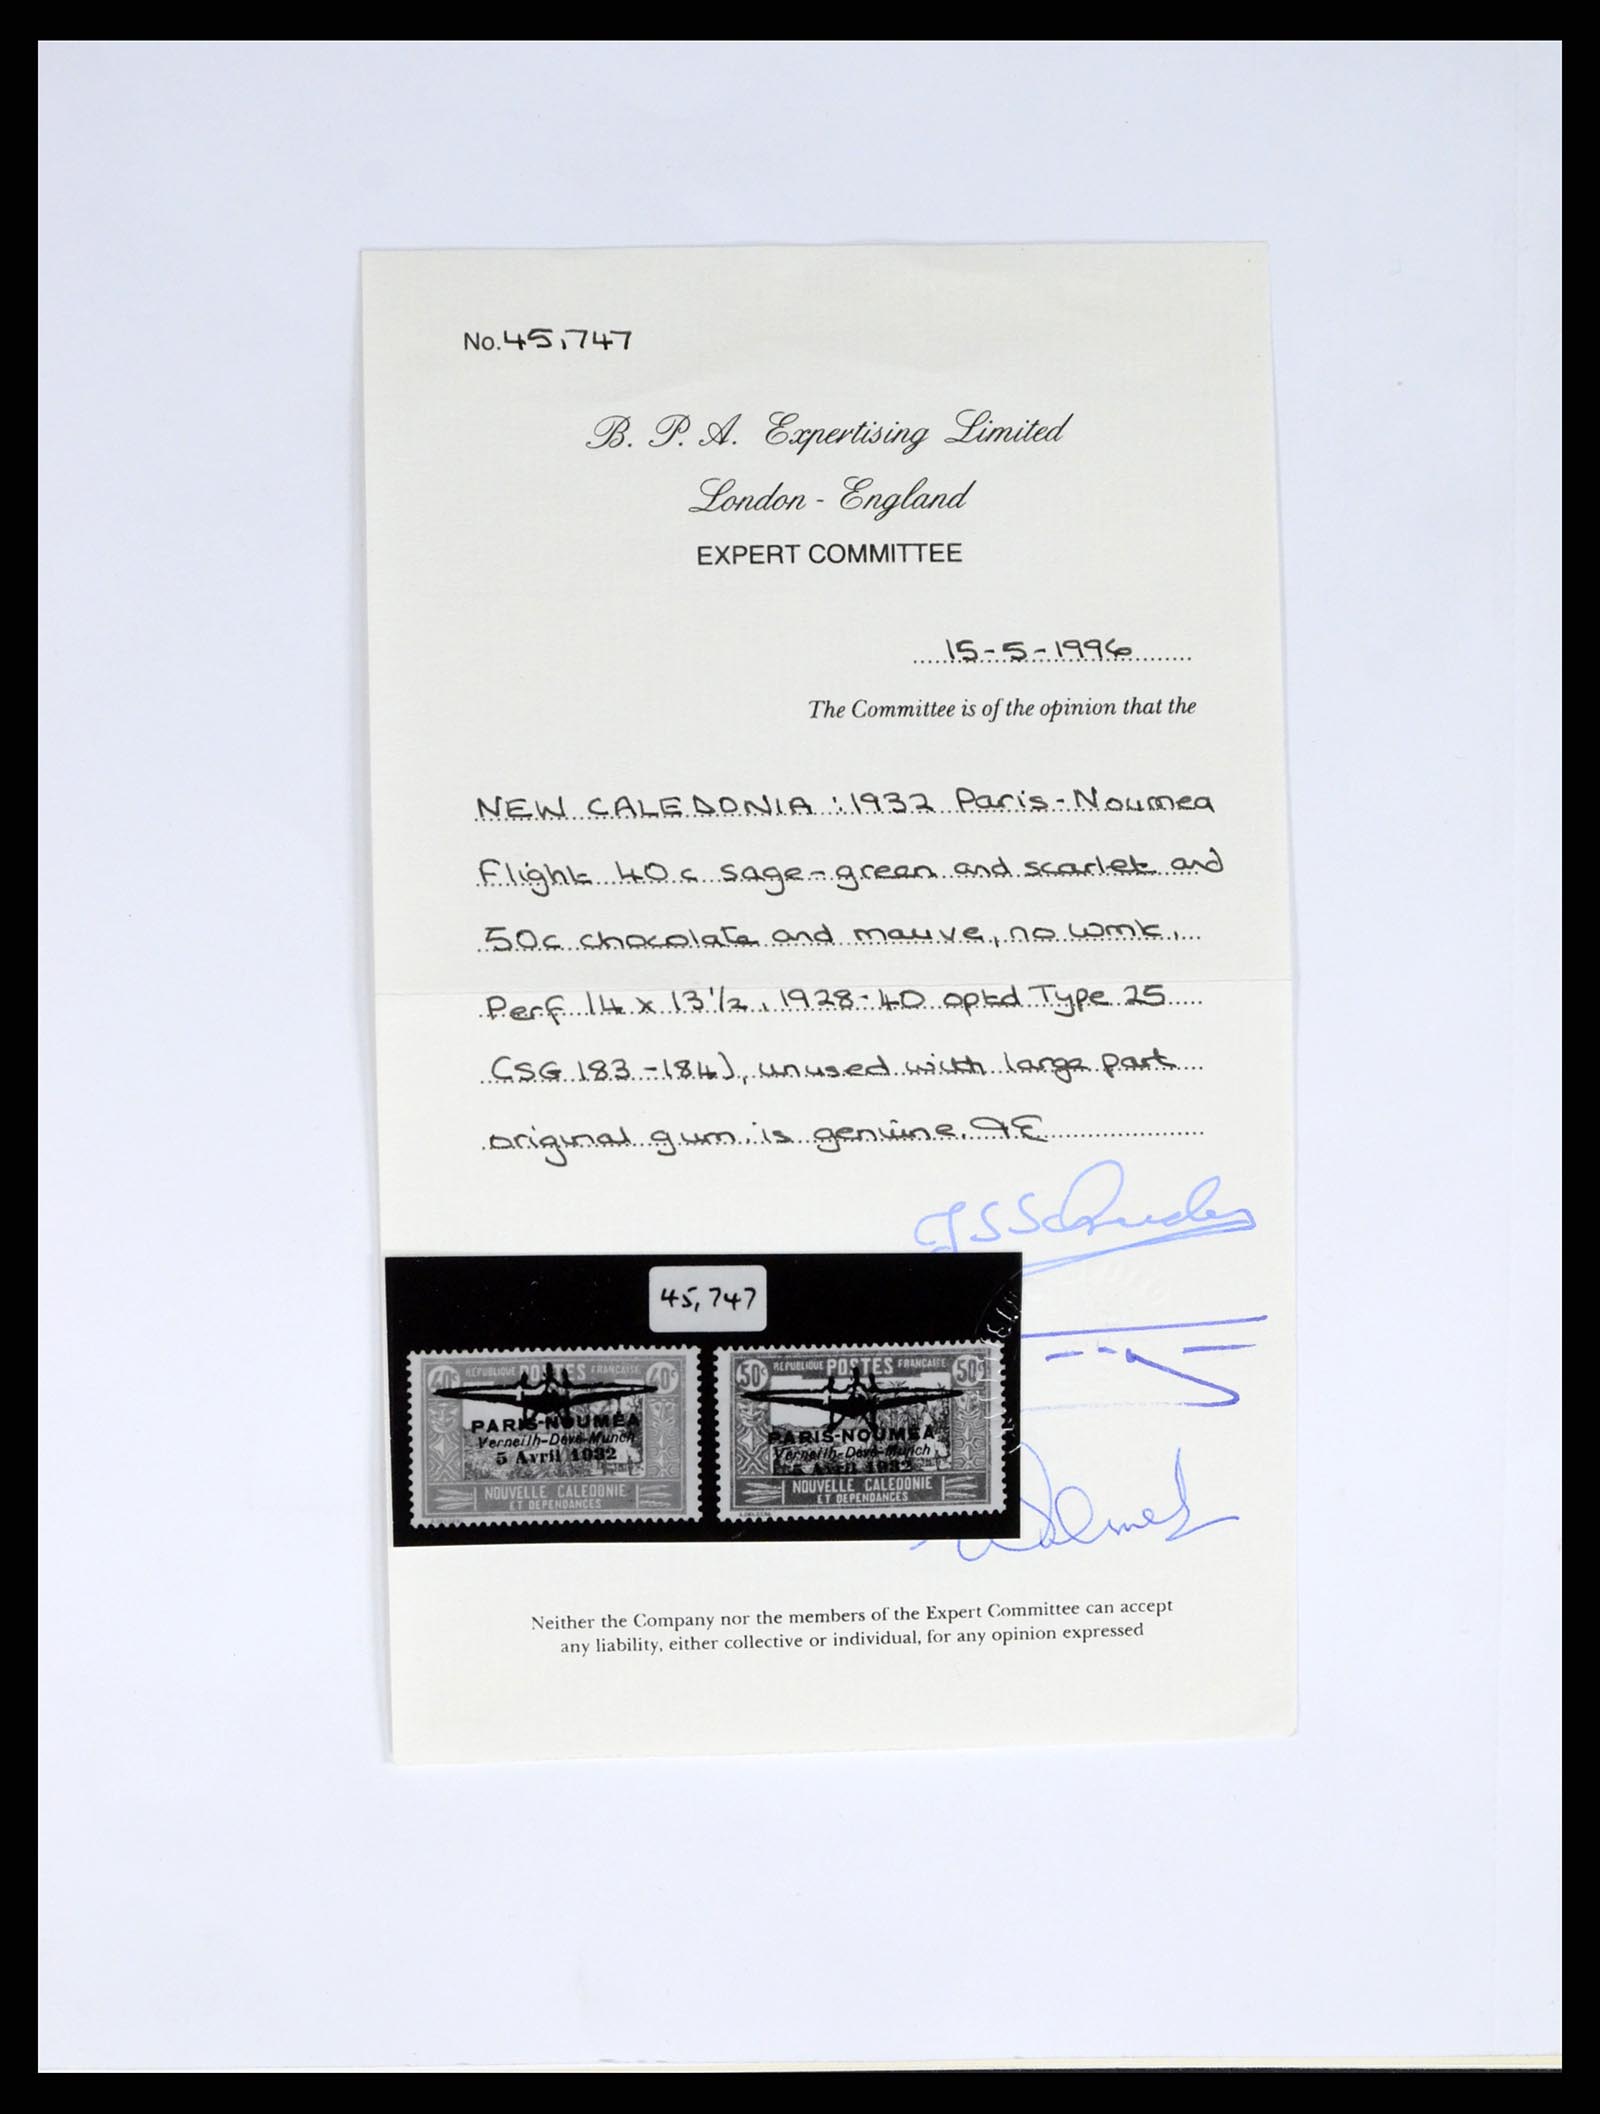 No. 45,747
B. P. A. Expertising Limited
London - England
EXPERT COMMITTEE
15-5-1996
The Committee is of the opinion that the
NEW CALEDONIA : 1932 Paris-Noumea
Flight 40c sage-green and scarlet and
50c chocolate and mauve, no wmk,
Perf 14 x 13 1/2, 1928-40 optd Type 25
(SG 183-184), unused with large part
original gum, is genuine.
45,747
40c RÉPUBLIQUE POSTES FRANCAISE 40c
PARIS-NOUMÉA
Verneilh-Dévé-Munch
5 Avril 1932
NOUVELLE CALEDONIE
ET DEPENDANCES
50c RÉPUBLIQUE POSTES FRANCAISE 50c
PARIS-NOUMÉA
Verneilh-Dévé-Munch
5 Avril 1932
NOUVELLE CALEDONIE
ET DEPENDANCES
Neither the Company nor the members of the Expert Committee can accept
any liability, either collective or individual, for any opinion expressed